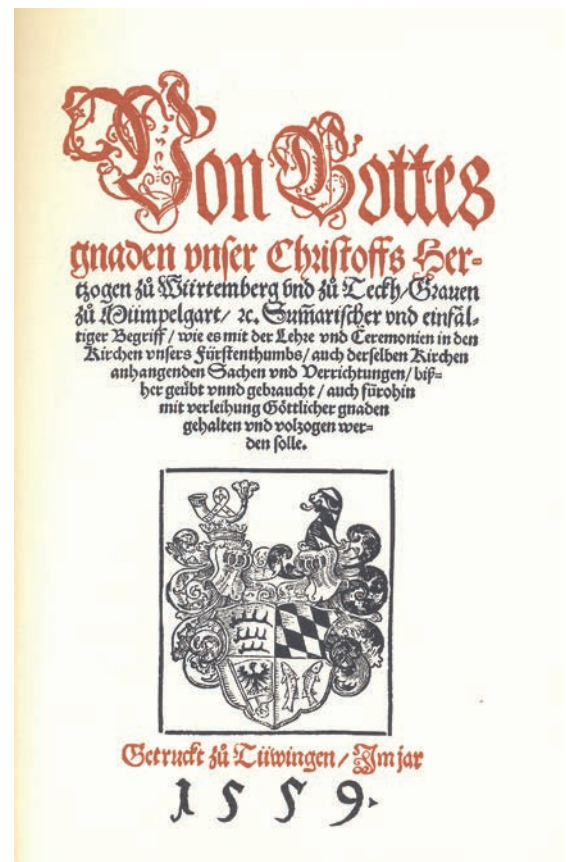 Von Gottes
gnaden vnser Christoffs Her-
tzogen zů Würtemberg vnd zů Teckh/ Grauen
zů Mümpelgart/ ꝛc. Sum̃arischer vnd einfäl-
tiger Begriff/ wie es mit der Lehre vnd Ceremonien in den
Kirchen vnsers Fürstenthumbs/ auch derselben Kirchen
anhangenden Sachen vnd Verrichtungen/ biß-
her geübt vnnd gebraucht/ auch fürohin
mit verleihung Göttlicher gnaden
gehalten vnd volzogen wer-
den solle.
Getruckt zů Tüwingen/ Im jar
1559.